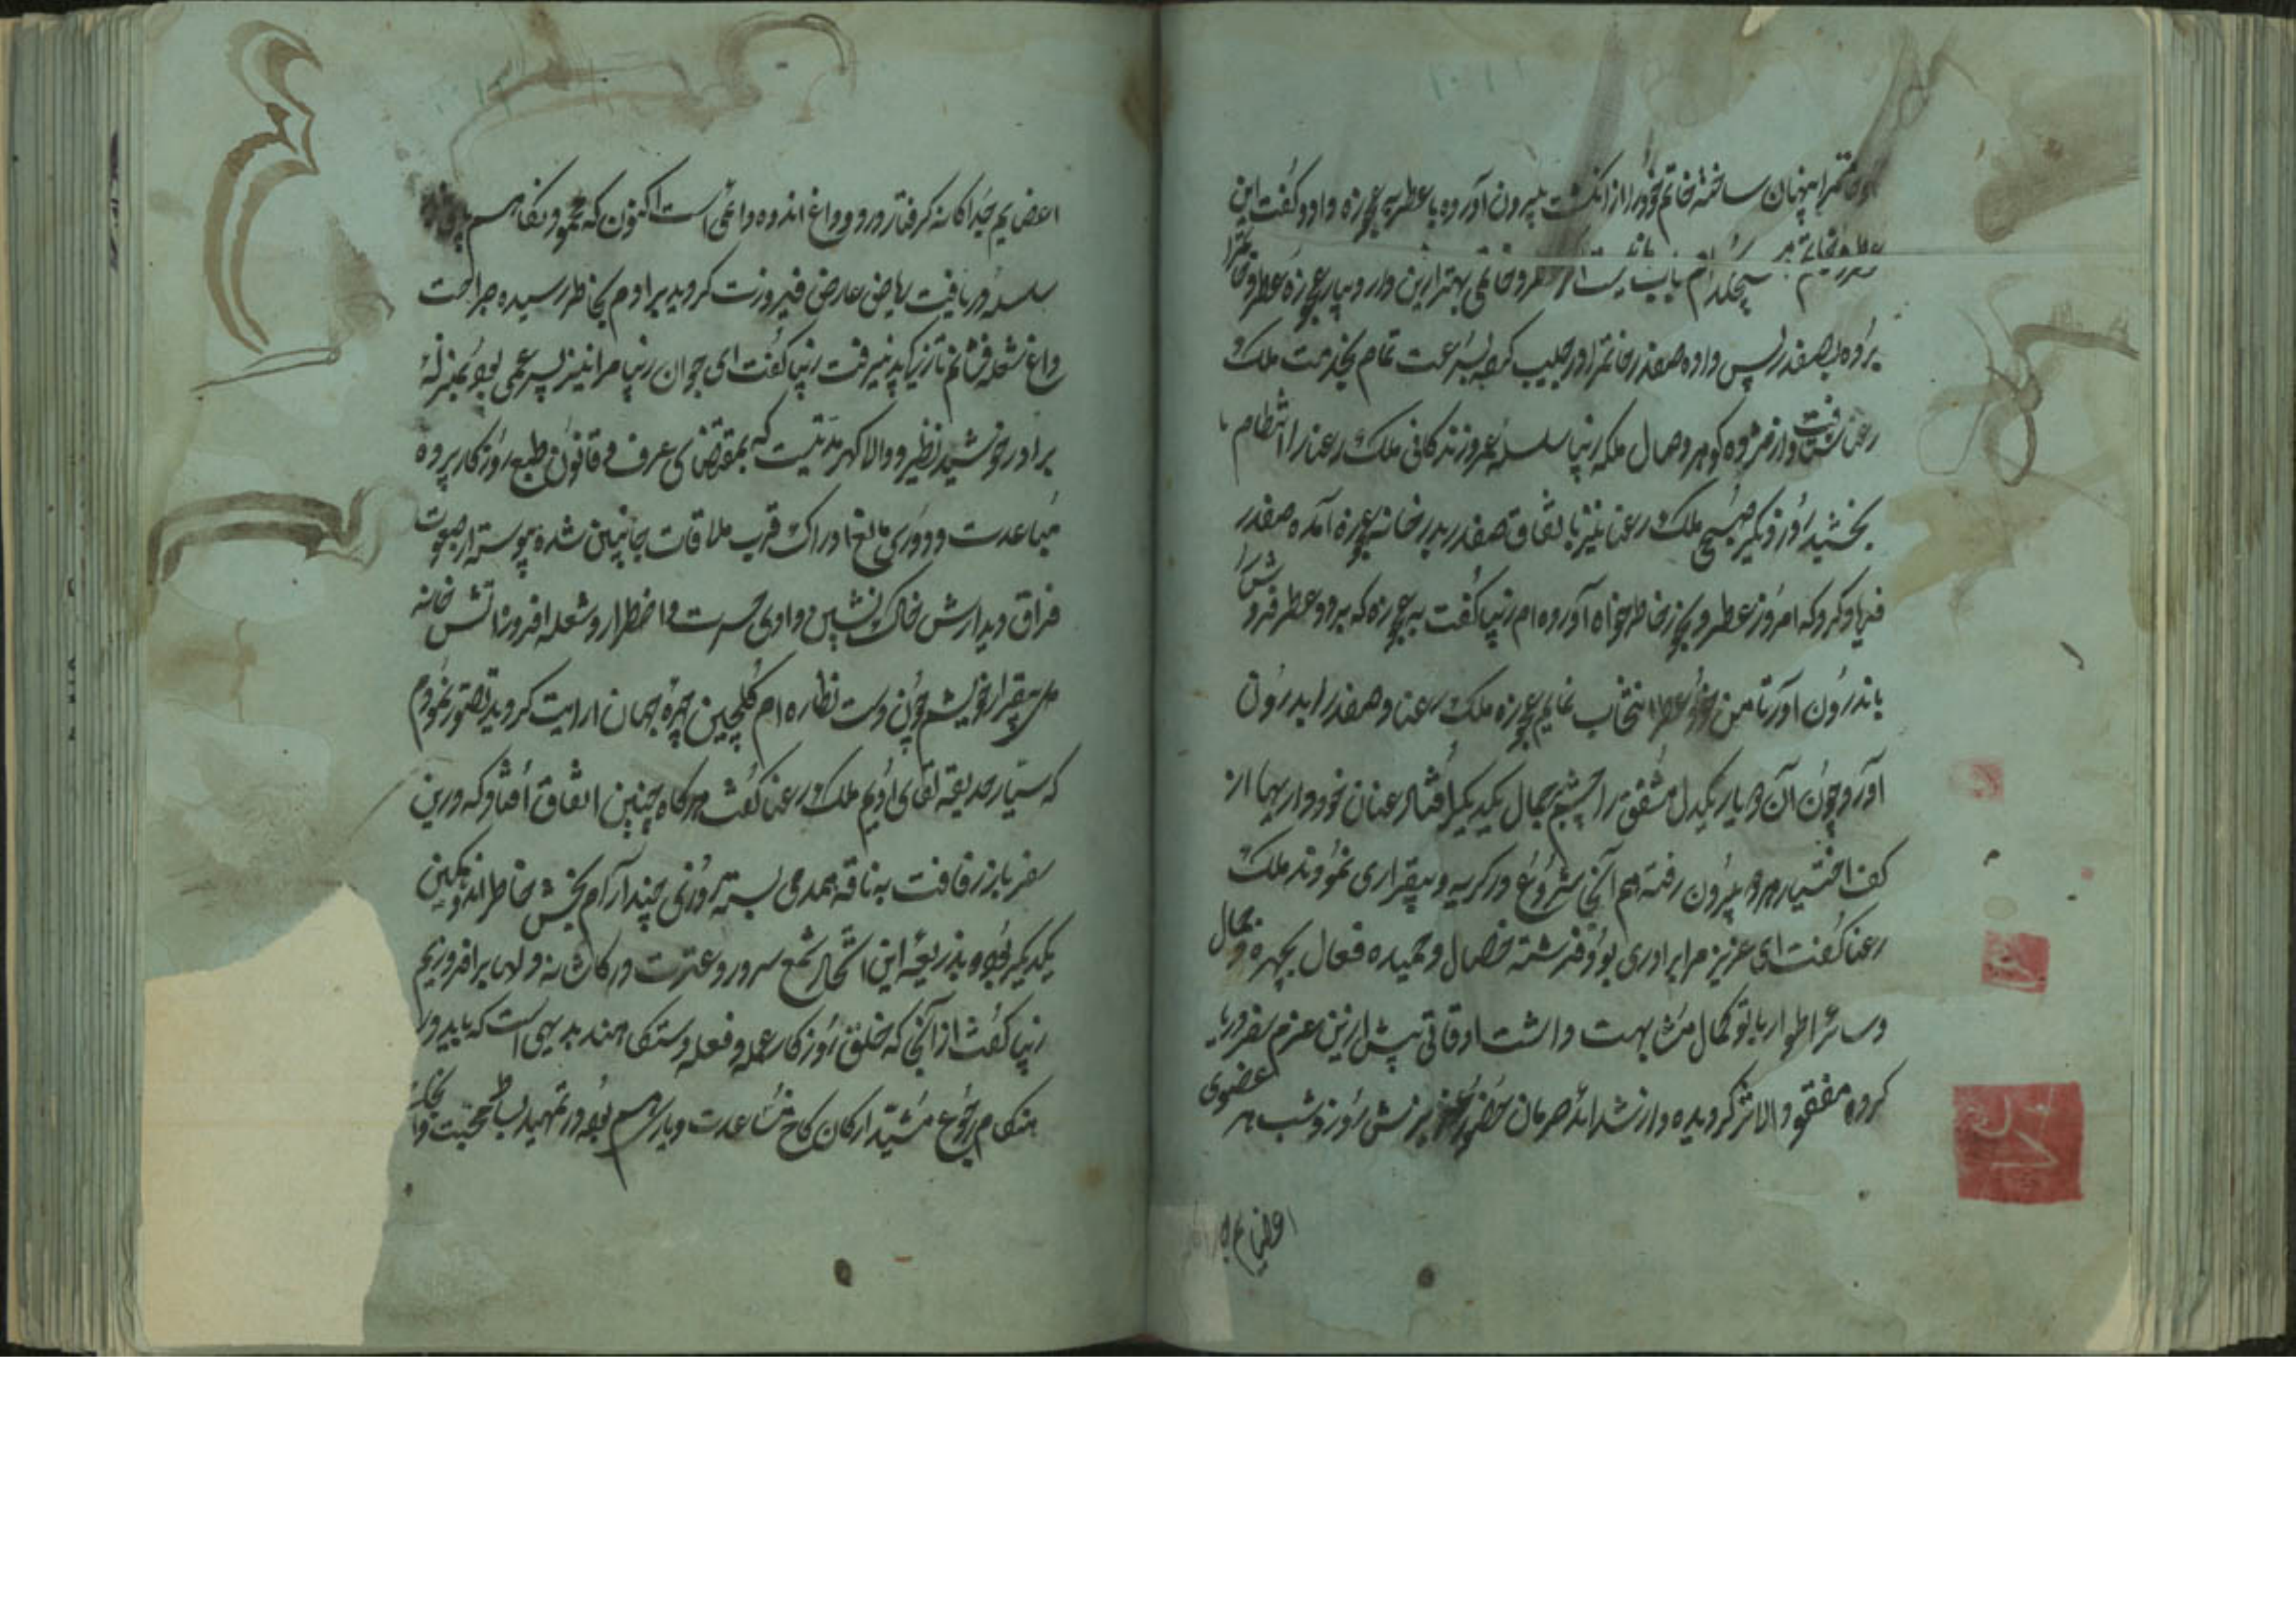 خاتم را پنهان ساخته خاتم خود را از انگشت بیرون آورده با عطر به عجوزه داد و گفت این
عطر و خاتم هیچکدام باب نیست از عطر و خاتمی بهتر ازین دارد بیار عجوزه عطر و خاتم را
برده بصفدر پس داده صفدر خاتم را در جیب کرده بسرعت تمام بخدمت ملک
رعنا شتافت و از مژده گوهر وصال ملکه زیبا سلسله عمر و زندگانی ملک رعنا را انتظام
بخشید روز دیگر صبحی ملک رعنا نیز با تفاق صفدر بدر خانه عجوزه آمده صفدر
فریاد کرد که امروز عطر و بخور خاطر خواه آورده ام زیبا گفت به عجوزه که برو و عطر فروش را
باندرون آور تا من خود عطر انتخاب نمایم عجوزه ملک رعنا و صفدر را بدرون
آورد چون آن دو یار یکدل مشفق را چشم بجمال یکدیگر افتاد عنان خود داریها از
کف اختیار هر دو بیرون رفته هم آنجا شروع در گریه و بیقراری نمودند ملک
رعنا گفت ای عزیز مرا برادری بود فرشته خصال و حمیده فعال بچهره و جمال
و سائر اطوار با تو کمال مشابهت داشت اوقاتی پیش ازین عزم سفر دریا
کرده مفقود الاثر گردیده و از شدائد حرمان حضور برنش روز و شب هر عضوی
اعضایم جدا
اعضایم جداگانه گرفتار درد و داغ اندوه و المی است اکنون که
سلسله دریافت ریاض عارض فیروزت گردید برادرم بخاطر رسیده جراحت
داغ شعله فشانم تازگی پذیرفت زیبا گفت ای جوان زیبا مرا نیز پسر عمی بود بمنزله
برادر خورشید نظیر و والا گهر مدتیست که بمقتضای عرف و قانون طبع روزگار پرده
مباعدت و دوری مانع ادراک قرب ملاقات جانبین شده پیوسته از صعوبت
فراق دیدارش خاک نشین وادی حسرت و اضطرار و شعله افروز آتش خانه
دل بیقرار خویشم چون دست نظاره ام گلچین چهره جهان آرایت گردید تصور نمودم
که سیار حدیقه لقای اویم ملک رعنا گفت هرگاه چنین اتفاق افتاد که درین
سفر بار رفاقت به ناقه همدمی بسته روزی چند آرام بخش خاطر اندوهگین
یکدیگر بوده بذریعه این اتحاد شمع سرور و عشرت در کاشانه دلها برافروزیم
زیبا گفت از آنجا که خلق روزگار عمله و فعله دستگاهند بدیهی است که باید در
هنگام رجوع مشید ارکان کاخ مساعدت و یاری هم بوده در تمهید بساط محبت و